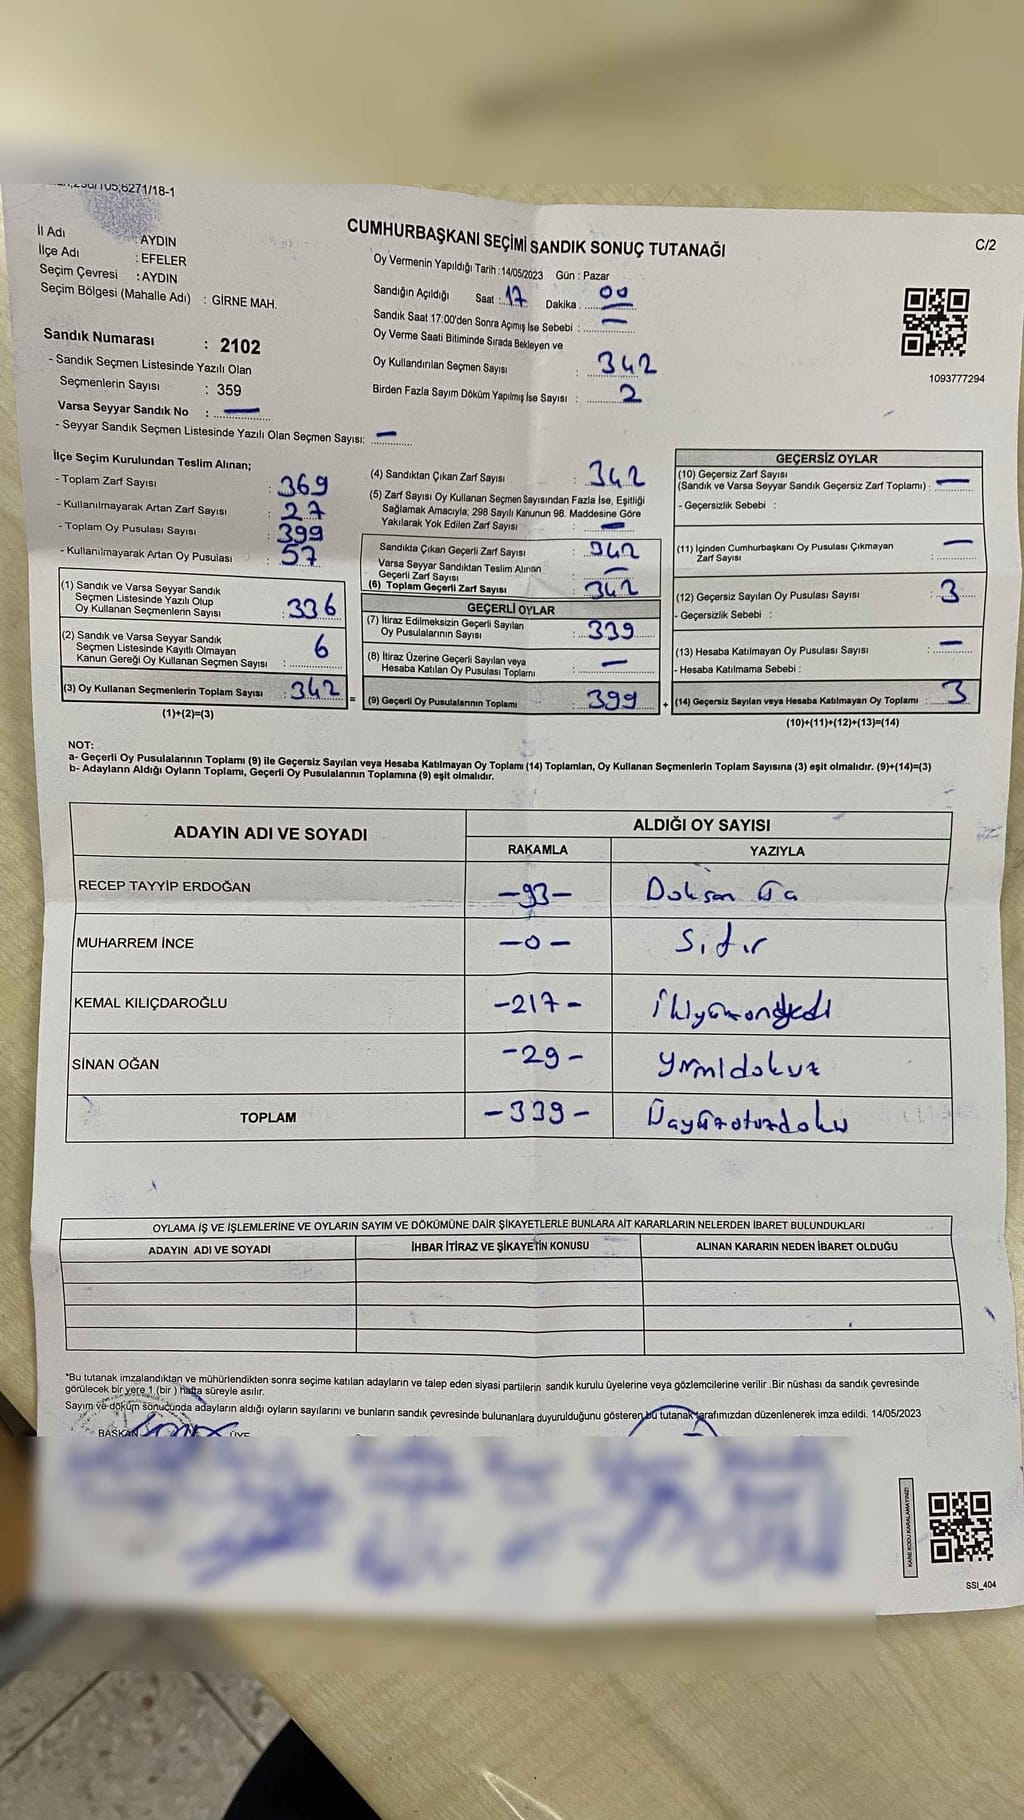 CUMHURBAŞKANI SEÇİMİ SANDIK SONUÇ TUTANAĞI
C/2
İl Adı : AYDIN
İlçe Adı : EFELER
Seçim Çevresi : AYDIN
Seçim Bölgesi (Mahalle Adı) : GİRNE MAH.
Oy Vermenin Yapıldığı Tarih : 14/05/2023 Gün : Pazar
Sandığın Açıldığı Saat : 17 Dakika 00
Sandık Saat 17:00'den Sonra Açımış İse Sebebi : —
Oy Verme Saati Bitiminde Sırada Bekleyen ve
Oy Kullandırılan Seçmen Sayısı : 342
Birden Fazla Sayım Döküm Yapılmış İse Sayısı : 2
1093777294
Sandık Numarası : 2102
- Sandık Seçmen Listesinde Yazılı Olan
Seçmenlerin Sayısı : 359
Varsa Seyyar Sandık No : —
- Seyyar Sandık Seçmen Listesinde Yazılı Olan Seçmen Sayısı: —
İlçe Seçim Kurulundan Teslim Alınan;
- Toplam Zarf Sayısı : 369
- Kullanılmayarak Artan Zarf Sayısı : 27
- Toplam Oy Pusulası Sayısı : 399
- Kullanılmayarak Artan Oy Pusulası : 57
(1) Sandık ve Varsa Seyyar Sandık
Seçmen Listesinde Yazılı Olup
Oy Kullanan Seçmenlerin Sayısı : 336
(2) Sandık ve Varsa Seyyar Sandık
Seçmen Listesinde Kayıtlı Olmayan
Kanun Gereği Oy Kullanan Seçmen Sayısı : 6
(3) Oy Kullanan Seçmenlerin Toplam Sayısı : 342
(1)+(2)=(3)
(4) Sandıktan Çıkan Zarf Sayısı : 342
(5) Zarf Sayısı Oy Kullanan Seçmen Sayısından Fazla İse, Eşitliği
Sağlamak Amacıyla; 298 Sayılı Kanunun 98. Maddesine Göre
Yakılarak Yok Edilen Zarf Sayısı : —
Sandıkta Çıkan Geçerli Zarf Sayısı : 342
Varsa Seyyar Sandıktan Teslim Alınan
Geçerli Zarf Sayısı : —
(6) Toplam Geçerli Zarf Sayısı : 342
GEÇERLİ OYLAR
(7) İtiraz Edilmeksizin Geçerli Sayılan
Oy Pusulalarının Sayısı : 339
(8) İtiraz Üzerine Geçerli Sayılan veya
Hesaba Katılan Oy Pusulası Toplamı : —
= (9) Geçerli Oy Pusulalarının Toplamı : 399
GEÇERSİZ OYLAR
(10) Geçersiz Zarf Sayısı
(Sandık ve Varsa Seyyar Sandık Geçersiz Zarf Toplamı) : —
- Geçersizlik Sebebi :
(11) İçinden Cumhurbaşkanı Oy Pusulası Çıkmayan
Zarf Sayısı : —
(12) Geçersiz Sayılan Oy Pusulası Sayısı : 3
- Geçersizlik Sebebi :
(13) Hesaba Katılmayan Oy Pusulası Sayısı : —
- Hesaba Katılmama Sebebi :
+ (14) Geçersiz Sayılan veya Hesaba Katılmayan Oy Toplamı : 3
(10)+(11)+(12)+(13)=(14)
NOT:
a- Geçerli Oy Pusulalarının Toplamı (9) ile Geçersiz Sayılan veya Hesaba Katılmayan Oy Toplamı (14) Toplamları, Oy Kullanan Seçmenlerin Toplam Sayısına (3) eşit olmalıdır. (9)+(14)=(3)
b- Adayların Aldığı Oyların Toplamı, Geçerli Oy Pusulalarının Toplamına (9) eşit olmalıdır.
ADAYIN ADI VE SOYADI ALDIĞI OY SAYISI
RAKAMLA YAZIYLA
RECEP TAYYİP ERDOĞAN -93- Doksan üç
MUHARREM İNCE -0- Sıfır
KEMAL KILIÇDAROĞLU -217- İkiyüzonyedi
SİNAN OĞAN -29- yirmidokuz
TOPLAM -339- Üçyüzotuzdokuz
OYLAMA İŞ VE İŞLEMLERİNE VE OYLARIN SAYIM VE DÖKÜMÜNE DAİR ŞİKAYETLERLE BUNLARA AİT KARARLARIN NELERDEN İBARET BULUNDUKLARI
ADAYIN ADI VE SOYADI İHBAR İTİRAZ VE ŞİKAYETİN KONUSU ALINAN KARARIN NEDEN İBARET OLDUĞU
*Bu tutanak imzalandıktan ve mühürlendikten sonra seçime katılan adayların ve talep eden siyasi partilerin sandık kurulu üyelerine veya gözlemcilerine verilir .Bir nüshası da sandık çevresinde
görülecek bir yere 1 (bir ) hafta süreyle asılır.
Sayım ve döküm sonucunda adayların aldığı oyların sayılarını ve bunların sandık çevresinde bulunanlara duyurulduğunu gösteren bu tutanak tarafımızdan düzenlenerek imza edildi. 14/05/2023
BAŞKAN ÜYE
KARE KODU KARALAMAYINIZ!
SSI_404